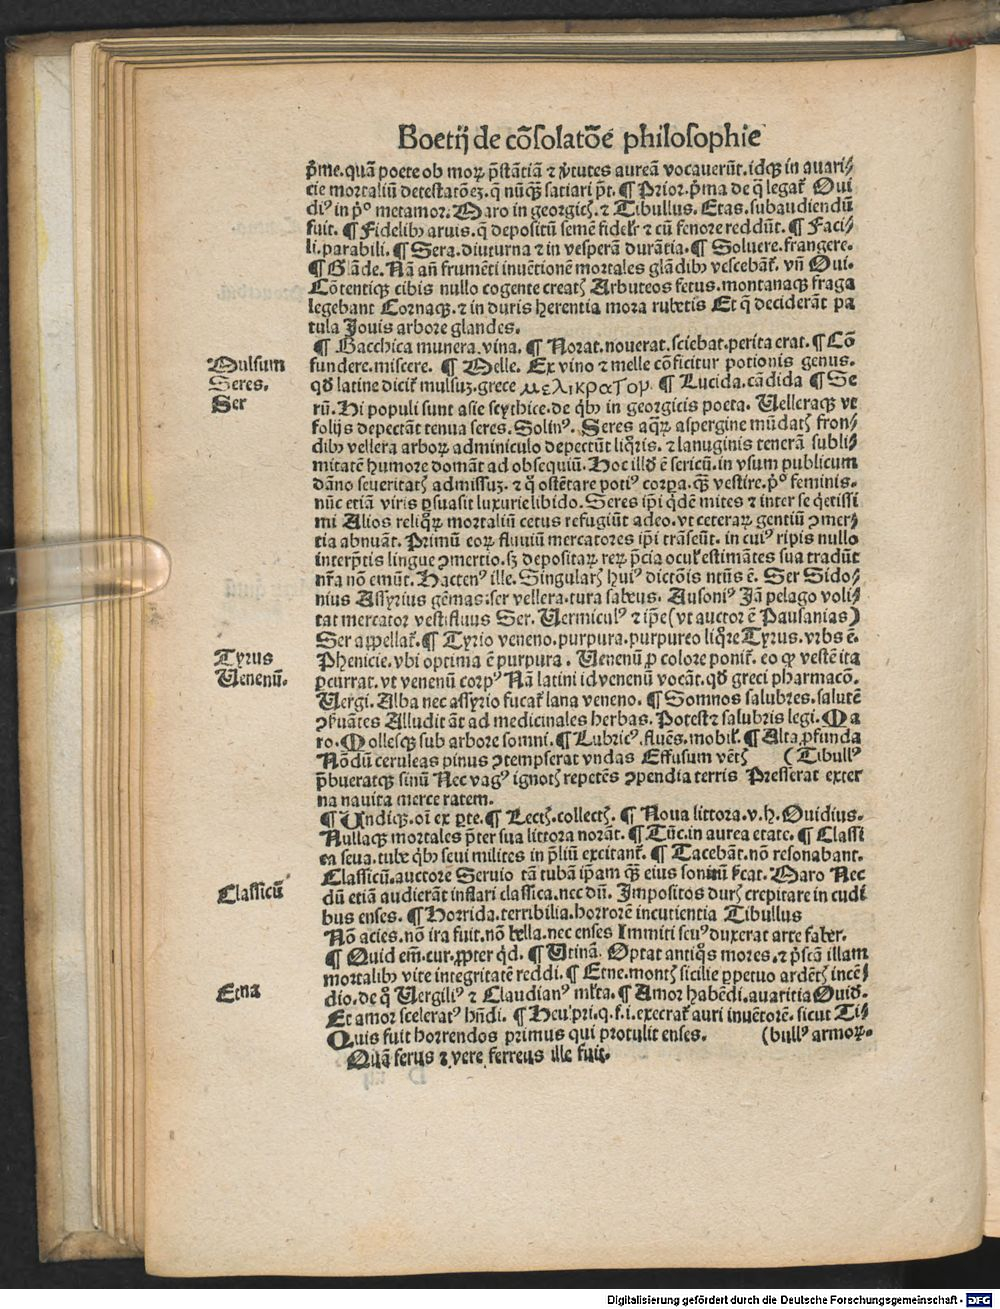 Boetij de cõsolatõe philosophie
p̃me. quã poete ob moꝝ p̃stãtiã ⁊ v̓tutes aureã vocauerũt. idqꝫ in auari⸗
cie mortaliũ detestatõeꝫ. q̃ nũqꝫ satiari p̃t. ¶ Prior. p̃ma de q̃ legat᷑ Oui
diꝰ in pº metamor. Maro in georgicꝭ. ⁊ Tibullus. Etas. subaudiendũ
fuit. ¶ Fidelibꝫ aruis. q̃ depositũ semẽ fidelr̃ ⁊ cũ fenore reddũt. ¶ Faci⸗
li. parabili. ¶ Sera. diuturna ⁊ in vesperã durãtia. ¶ Soluere. frangere.
¶ Glãde. Nã añ frumẽti inuẽtionẽ mortales glãdibꝫ vescebãt᷑. vñ Oui.
Cõtentiqꝫ cibis nullo cogente creatꝭ Arbuteos fetus. montanaqꝫ fraga
legebant Cornaqꝫ. ⁊ in duris herentia mora rubetis Et q̃ deciderãt pa
tula Jouis arbore glandes.
¶ Bacchica munera. vina. ¶ Norat. nouerat. sciebat. perita erat. ¶ Cõ
Mulsum
fundere. miscere. ¶ Melle. Ex vino ⁊ melle cõficitur potionis genus.
Seres.
qð latine dicit᷑ mulsuꝫ. grece μελικρατον. ¶ Lucida. cãdida ¶ Se
Ser
rũ. Hi populi sunt asie scythice. de q̇bꝫ in georgicis poeta. Velleraqꝫ vt
folijs depectãt tenua seres. Solinꝰ. Seres aq̃ꝝ aspergine mũdatꝭ fron⸗
dibꝫ vellera arboꝝ adminiculo depectũt liq̃ris. ⁊ lanuginis tenerã subli⸗
mitatẽ humore domãt ad obsequiũ. Hoc illð ẽ sericũ. in vsum publicum
dãno seueritatꝭ admissuꝫ. ⁊ q̊ ostẽtare potiꝰ corꝑa. qꝫ vestire. pº feminis.
nũc etiã viris ꝑsuasit luxurie libido. Seres ip̃i q̇dẽ mites ⁊ inter se q̇etissi
mi Alios reliq̊ꝝ mortaliũ cetus refugiũt adeo. vt ceteraꝝ gentiũ ꝯmer⸗
tia abnuãt. Primũ eoꝝ fluuiũ mercatores ip̃i trãseũt. in cuiꝰ ripis nullo
interp̃tis lingue ꝯmertio. sꝫ depositaꝝ reꝝ p̃cia ocul᷑ estimãtes sua tradũt
nr̃a nõ emũt. Hactenꝰ ille. Singularꝭ huiꝰ dictõis ntũs ẽ. Ser Sido⸗
nius Assyrius gẽmas: ser vellera. tura sabeus. Ausoniꝰ Jã pelago voli⸗
tat mercator vestifluus Ser. Vermiculꝰ ⁊ ip̃e (vt auctor ẽ Pausanias)
Ser appellat᷑. ¶ Tyrio veneno. purpura. purpureo liq̃re Tyrus. vrbs ẽ.
Tyrus
Phenicie. vbi optima ẽ purpura. Venenũ ꝓ colore ponit᷑. eo ꝙ vestẽ ita
Venenũ.
ꝑcurrat. vt venenũ corpꝰ Nã latini id venenũ vocãt. qð greci pharmacõ.
Vergi. Alba nec assyrio fucat᷑ lana veneno. ¶ Somnos salubres. salutẽ
ꝯfuãtes Alludit ãt ad medicinales herbas. Potest ⁊ salubris legi. Ma
ro. Mollesqꝫ sub arbore somni. ¶ Lubricꝰ. fluẽs. mobil᷑. ¶ Alta. ꝓfunda
Nõdũ ceruleas pinus ꝯtempserat vndas Effusum vẽtꝭ (Tibullꝰ
p̃bueratqꝫ sinũ Nec vagꝰ ignotꝭ repetẽs ꝯpendia terris Presserat exter
na nauita merce ratem.
¶ Undiqꝫ. oĩ ex ꝑte. ¶ Lectꝭ. collectꝭ. ¶ Noua littora. v. h. Ouidius.
Nullaqꝫ mortales p̃ter sua littora norãt. ¶ Tũc. in aurea etate. ¶ Classi
ca seua. tube q̇bꝫ seui milites in p̃liũ excitant᷑. ¶ Tacebãt. nõ resonabant.
Classicũ. auctore Seruio tã tubã ip̃am qꝫ eius sonitũ s̓cat. Maro Nec
Classicũ
dũ etiã audierãt inflari classica. nec dũ. Impositos durꝭ crepitare in cudi
bus enses. ¶ Horrida. terribilia. horrorẽ incutientia Tibullus
Nõ acies. nõ ira fuit. nõ bella. nec enses Immiti seuꝰ duxerat arte faber.
¶ Quid em̃. cur. ꝓpter q̇d. ¶ Utinã. Optat antiq̊s mores. ⁊ p̓scã illam
mortalibꝫ vite integritatẽ reddi. ¶ Etne. montꝭ sicilie ꝑpetuo ardẽtꝭ incẽ⸗
Etna
dio. de q̊ Vergiliꝰ ⁊ Claudianꝰ ml᷑ta. ¶ Amor habẽdi. auaritia Ouið.
Et amor sceleratꝰ hñdi. ¶ Heu. pri. q. f. i. execrat᷑ auri inuẽtorẽ. sicut Ti⸗
Quis fuit horrendos primus qui protulit enses. (bullꝰ armoꝝ.
Quã ferus ⁊ vere ferreus ille fuit.
Digitalisierung gefördert durch die Deutsche Forschungsgemeinschaft - DFG